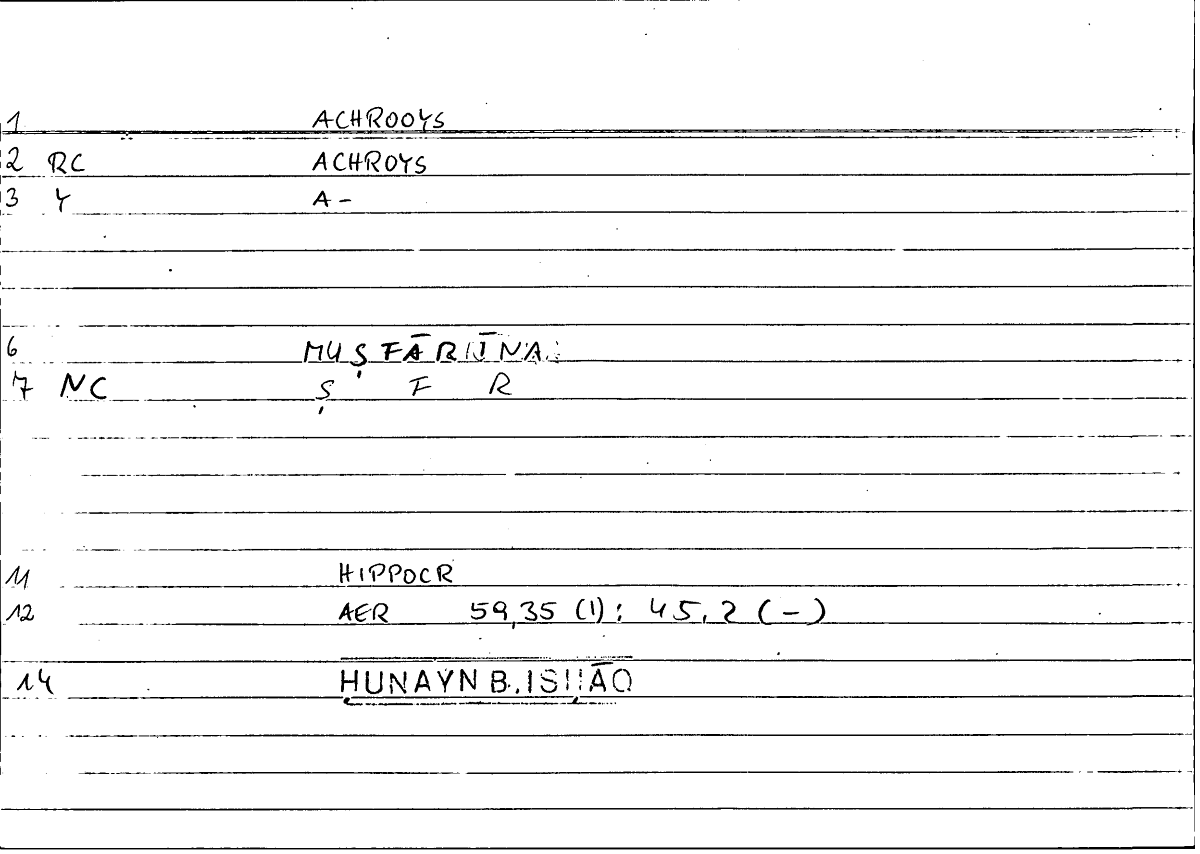 1 ACHROOYS
2 RC ACHROYS
3 Y A-
6 MUṢFĀRĪNA
7 NC Ṣ F R
11 HIPPOCR
12 AER 59,35 (1): 45,2 (-)
14 ḤUNAYN B. ISḤĀQ